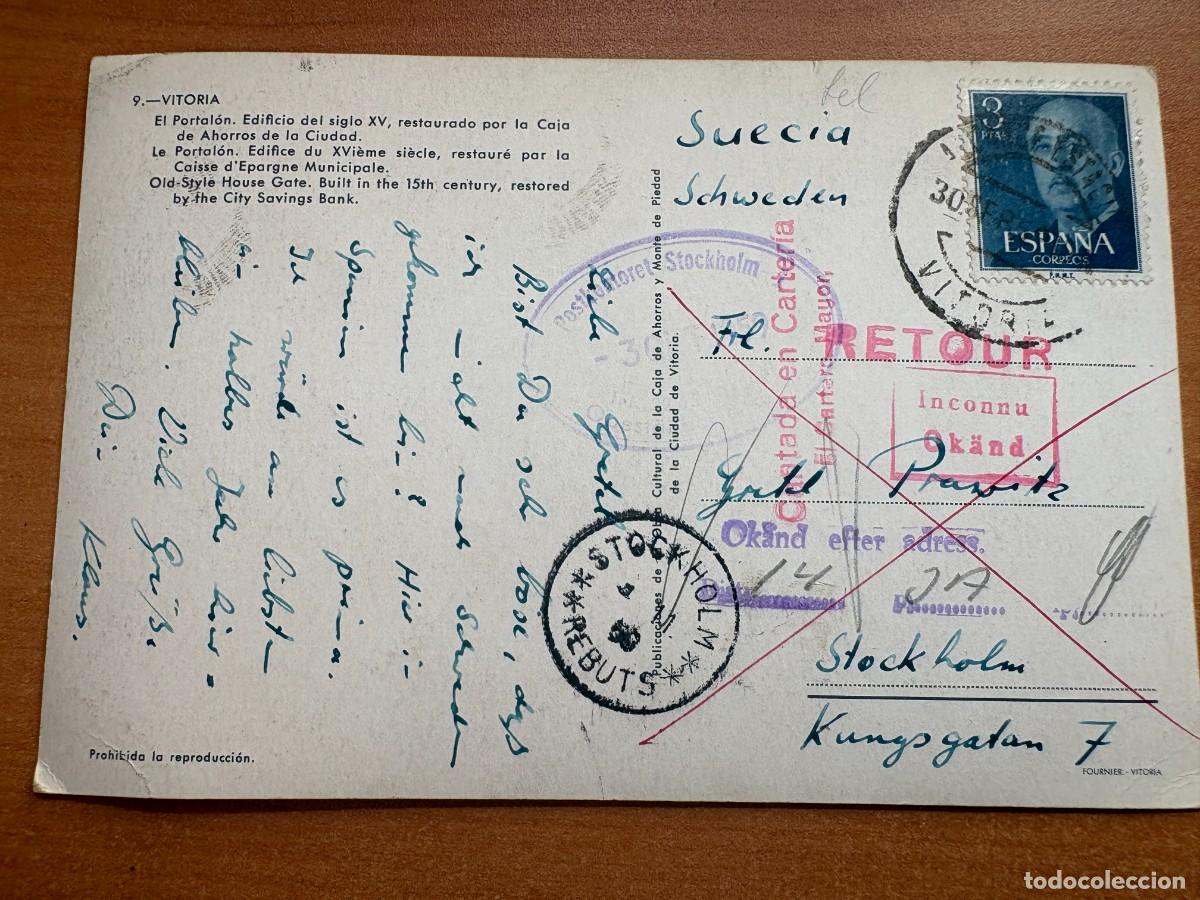 9.—VITORIA
El Portalón. Edificio del siglo XV, restaurado por la Caja
de Ahorros de la Ciudad.
Le Portalón. Edifice du XVième siècle, restauré par la
Caisse d'Epargne Municipale.
Old-Style House Gate. Built in the 15th century, restored
by the City Savings Bank.
Liebe Gretel
Bist Du sehr böse, daß
ich nicht nach Schweden
gekommen bin? Hier in
Spanien ist es prima.
Ich würde am liebsten
ein halbes Jahr hier
bleiben. Viele Grüße
Dein
Klaus.
Prohibida la reproducción.
Publicaciones de la Obra Cultural de la Caja de Ahorros y Monte de Piedad
de la Ciudad de Vitoria.
Suecia
Schweden
Frl.
Gretel Prawitz
Stockholm
Kungsgatan 7
FOURNIER - VITORIA
3
PTAS
ESPAÑA
CORREOS
F.N.M.T.
30
VITORIA
Postkontoret Stockholm
RETOUR
Inconnu
Okänd
en Cartería
El Cartero Mayor,
Okänd efter adress.
14
STOCKHOLM
REBUTS
todocoleccion